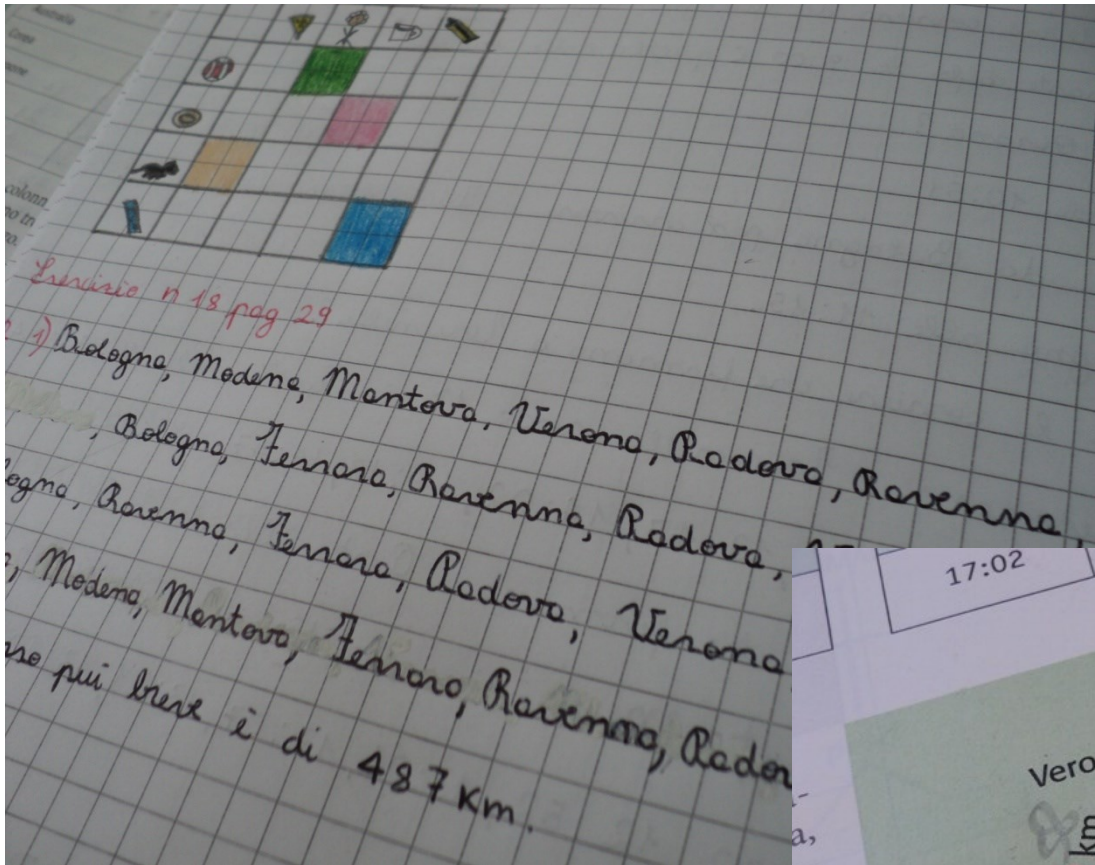 Australia
colonn
Esercizio n 18 pag 29
1) Bologna, Modena, Mantova, Verona, Padova, Ravenna,
, Bologna, Ferrara, Ravenna, Padova,
ogna, Ravenna, Ferrara, Padova, Verona
, Modena, Mantova, Ferrara, Ravenna, Padov
so pui breve è di 487 Km.
17:02
Vero
a,